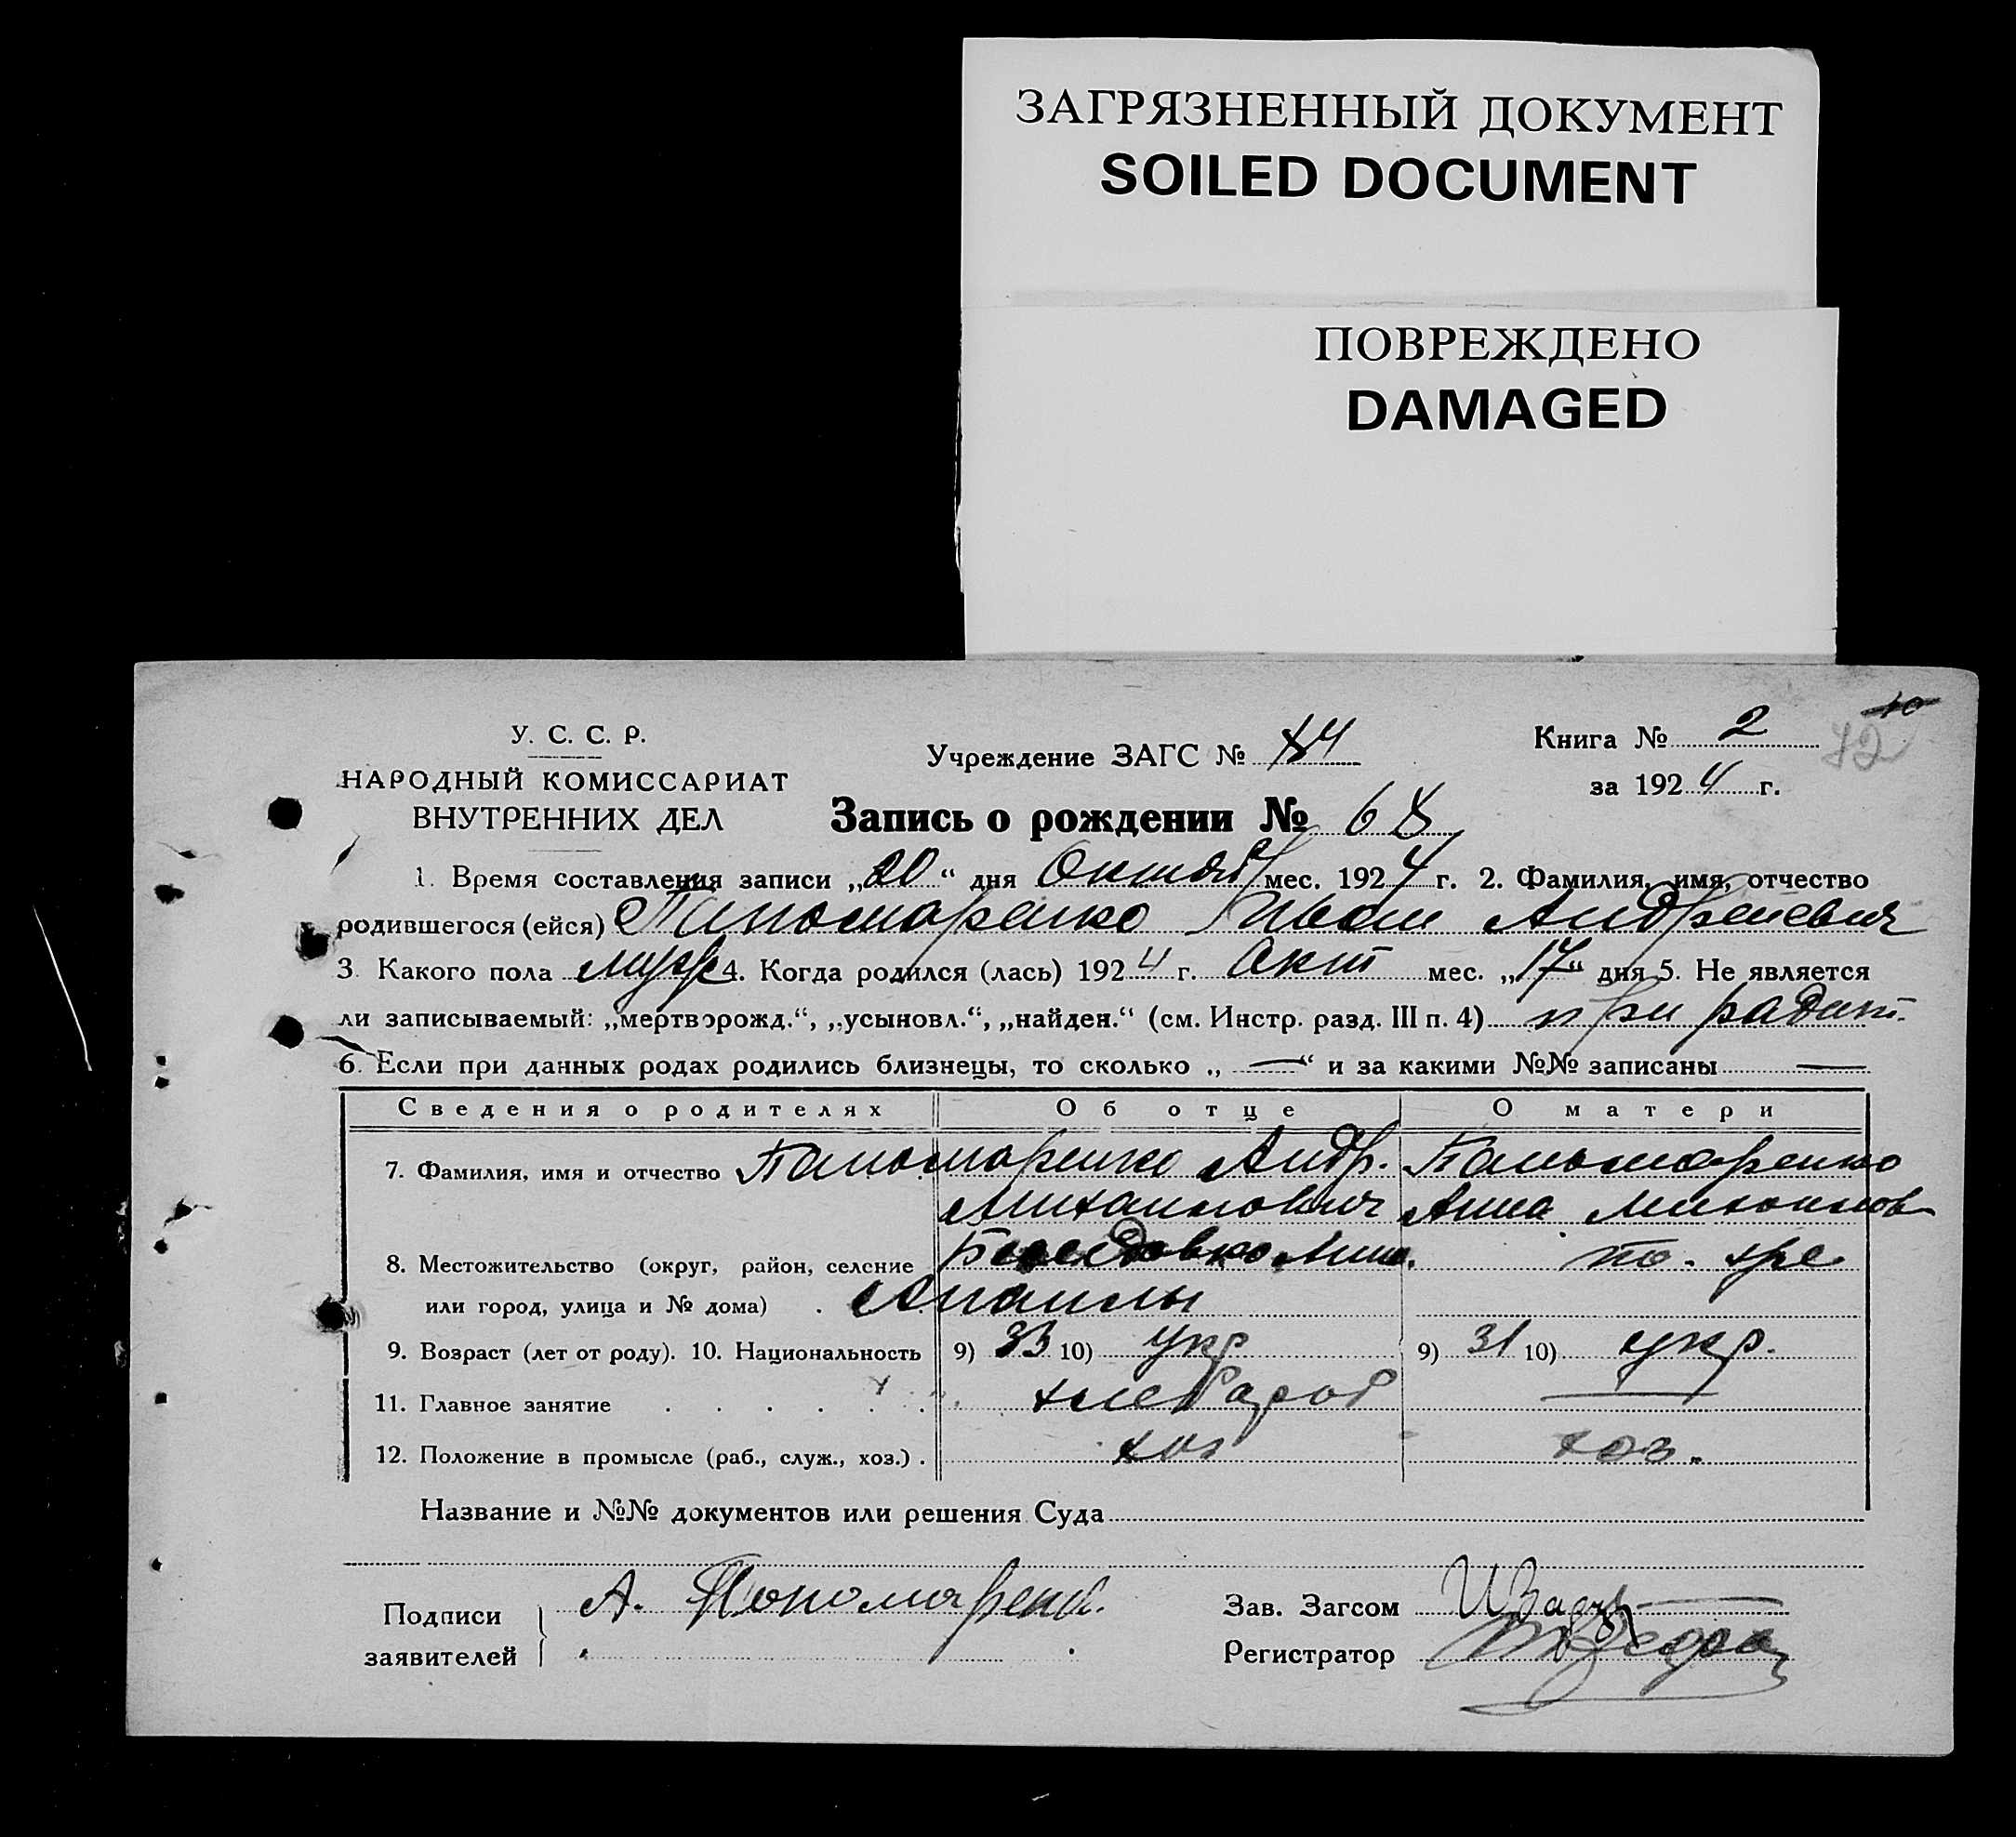 ЗАГРЯЗНЕННЫЙ ДОКУМЕНТ
SOILED DOCUMENT
ПОВРЕЖДЕНО
DAMAGED
У. С. С. Р.
НАРОДНЫЙ КОМИССАРИАТ
ВНУТРЕННИХ ДЕЛ
Учреждение ЗАГС №
Книга № 2
за 1924 г.
Запись о рождении № 68
1. Время составления записи „20“ дня Октября мес. 1924 г. 2. Фамилия, имя, отчество
родившегося (ейся) Панотаренко Иван Андреевич
3. Какого пола муж 4. Когда родился (лась) 1924 г. Окт мес. „17“ дня 5. Не является
ли записываемый: „мертворожд.“, „усыновл.“, „найден.“ (см. Инстр. разд. III п. 4) при радит.
6. Если при данных родах родились близнецы, то сколько „—“ и за какими №№ записаны —
Сведения о родителях Об отце О матери
7. Фамилия, имя и отчество Паномаренко Андр. Паномаренко
Михаилович Анна Михаилов
8. Местожительство (округ, район, селение то-же
или город, улица и № дома)
9. Возраст (лет от роду). 10. Национальность 9) 33 10) укр 9) 31 10) укр.
11. Главное занятие хлебароб —
12. Положение в промысле (раб., служ., хоз.) хоз хоз.
Название и №№ документов или решения Суда
Подписи А. Пономаренк. Зав. Загсом
заявителей Регистратор